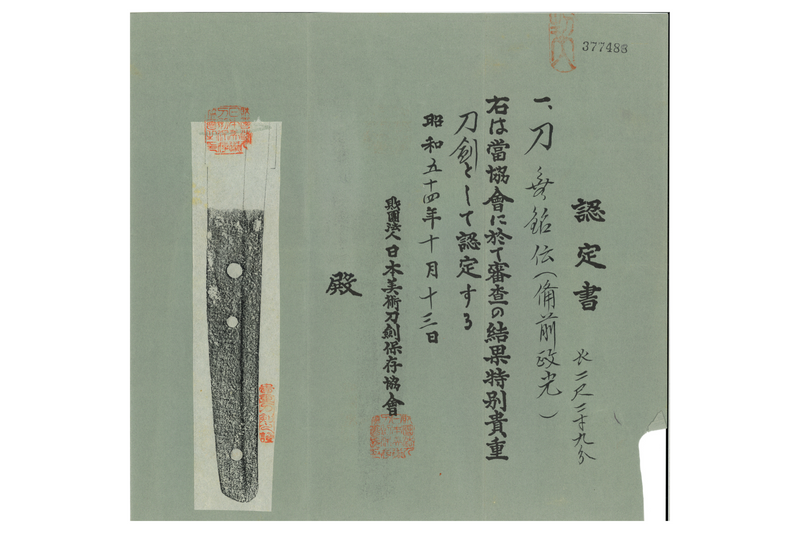 377486
認定書
一、刀 無銘伝(備前政光)
長二尺二寸九分
右は當協會に於て審査の結果特別貴重
刀剣として認定する
昭和五十四年十月十三日
財團法人日本美術刀剣保存協會
殿